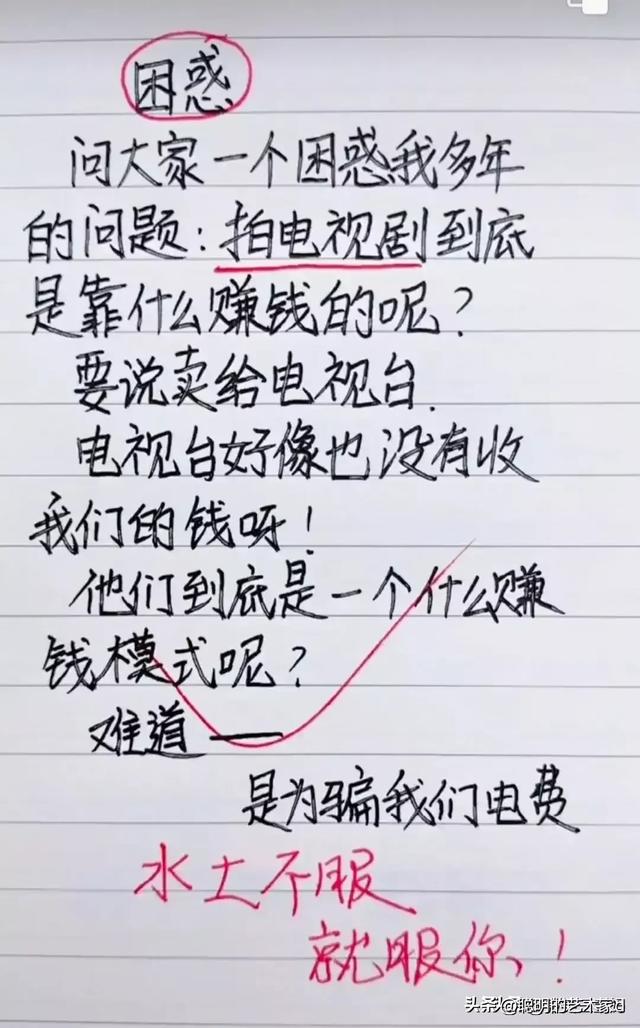 困惑
问大家一个困惑我多年
的问题:拍电视剧到底
是靠什么赚钱的呢?
要说卖给电视台.
电视台好像也没有收
我们的钱呀!
他们到底是一个什么赚
钱模式呢?
难道——
是为骗我们电费
水土不服
就服你!
头条@聪明的艺术家ID